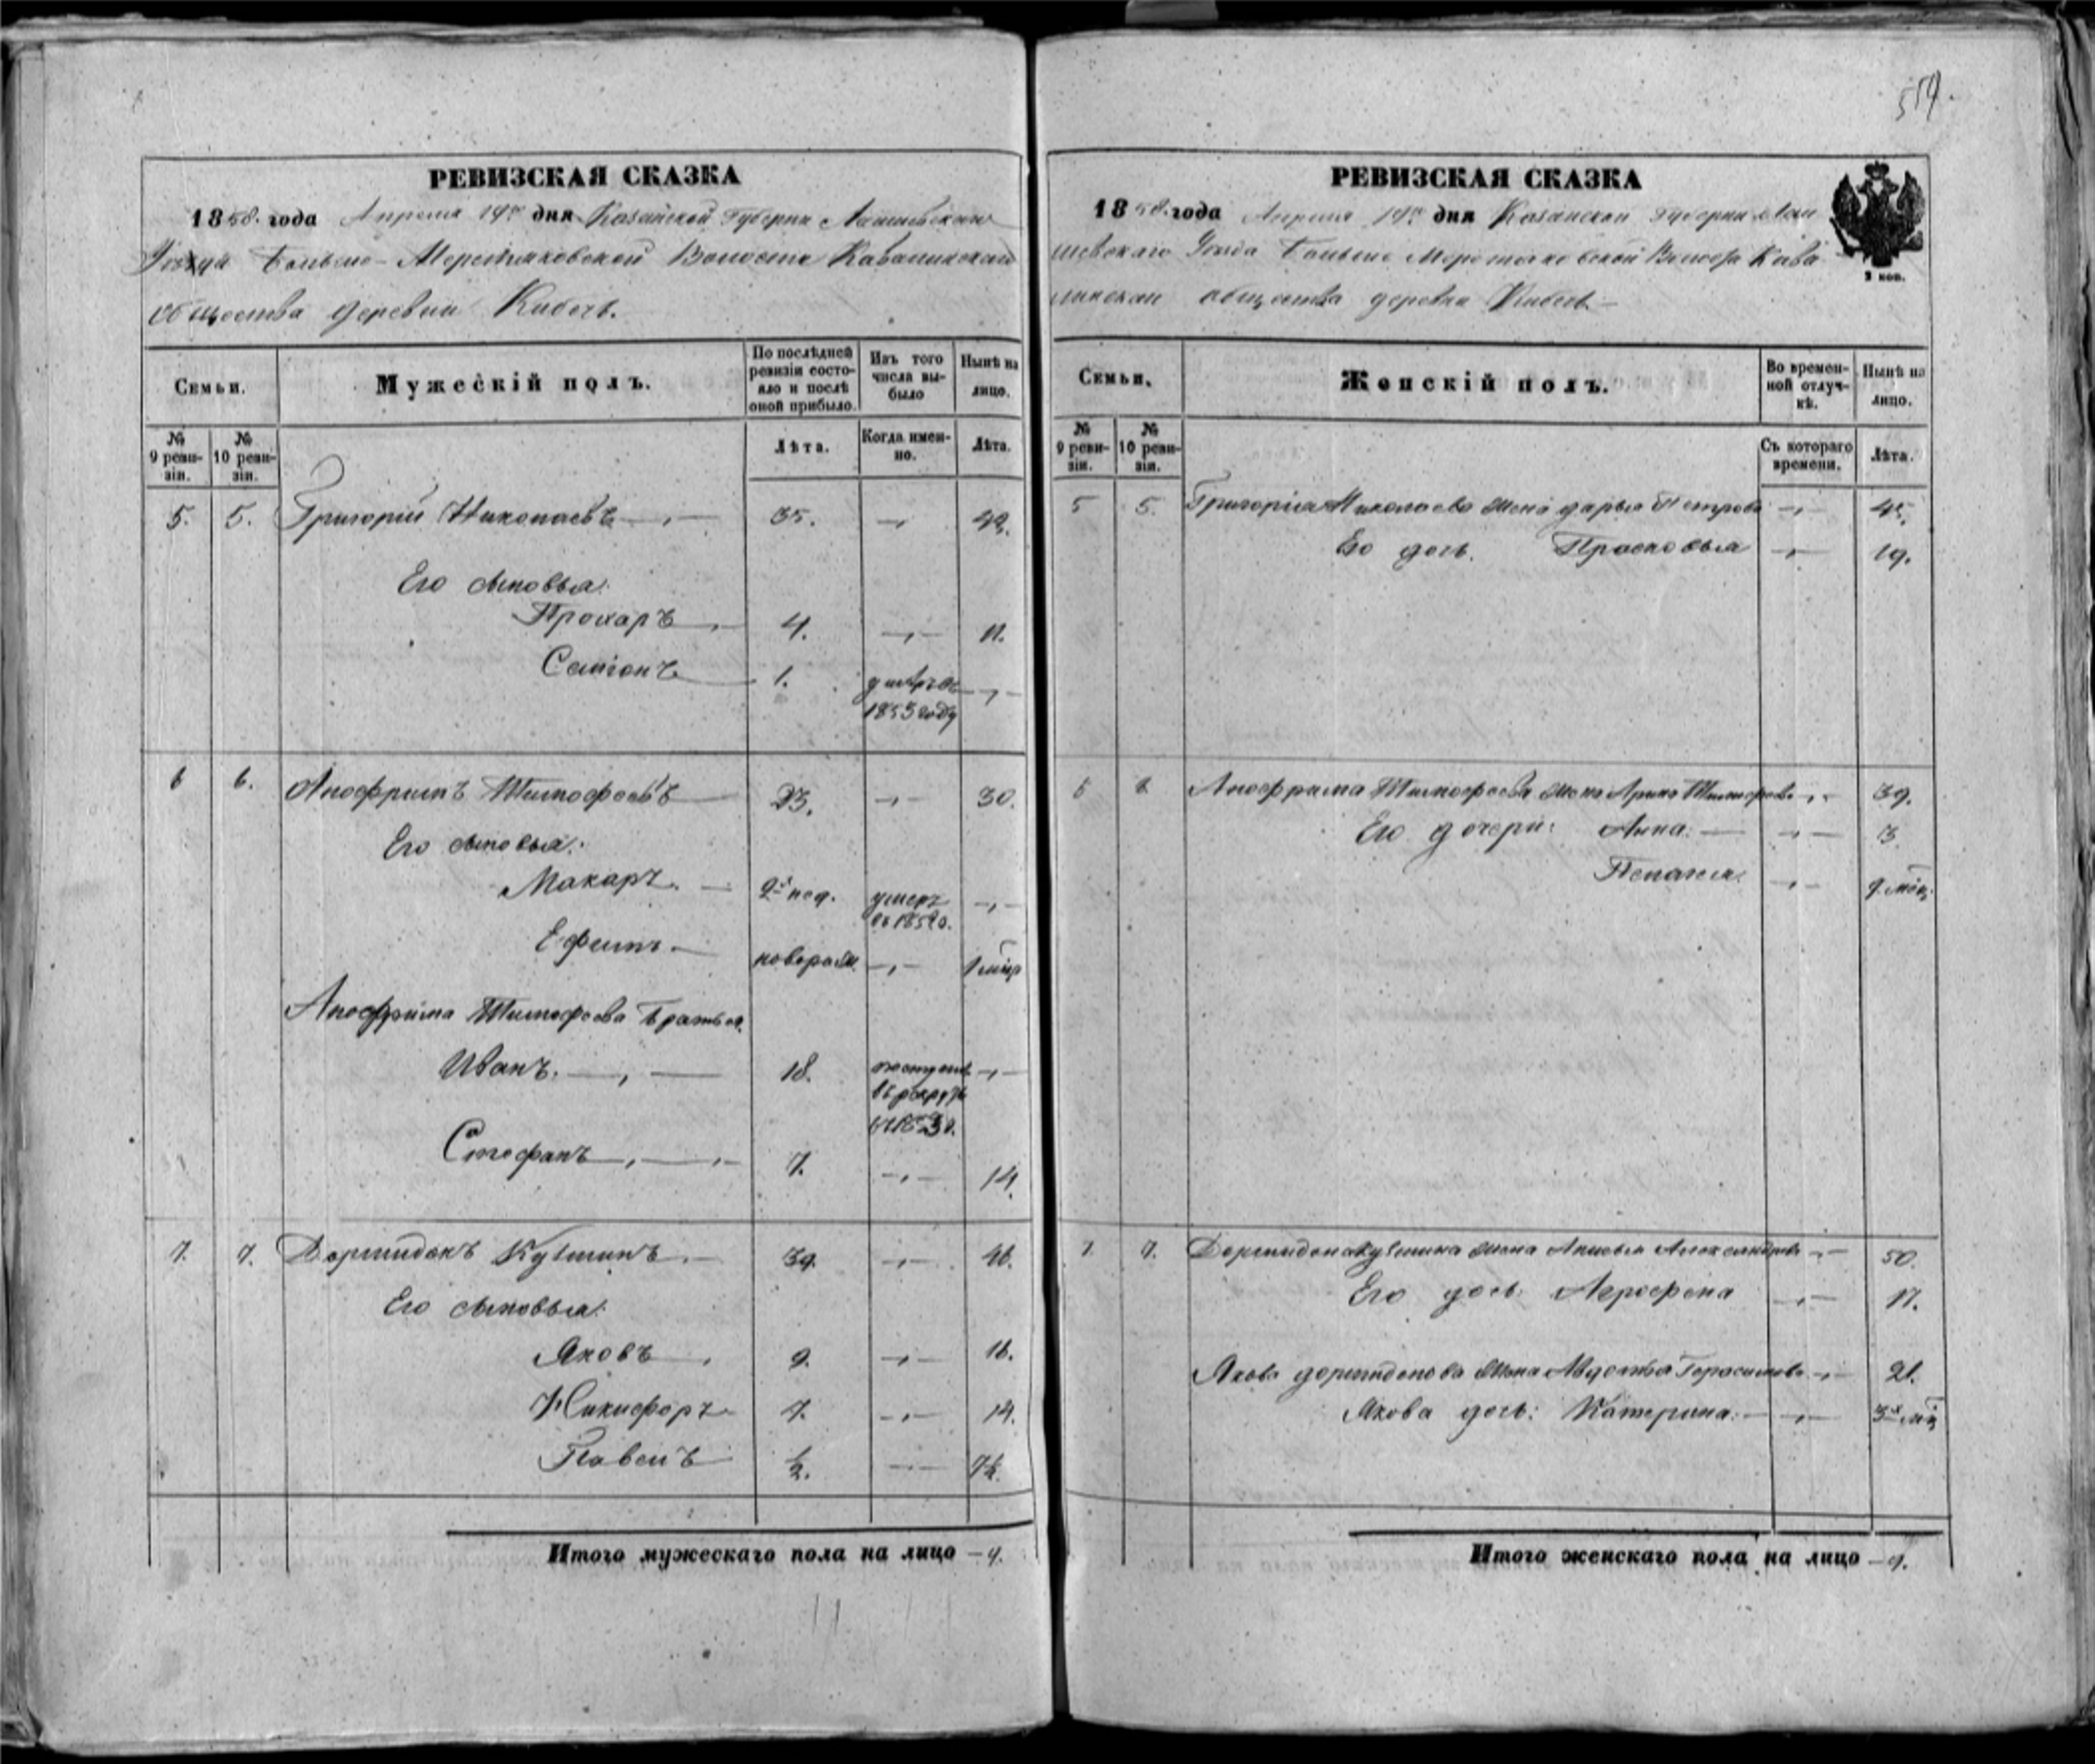 559.
РЕВИЗСКАЯ СКАЗКА
1858. года Апреля 19го дня Казанской Губернии Лаишевскаго
Уезда Больше-Меретяковской Волости Кабалинскаго
общества деревни Кибечь.
Семьи.
Мужескiй полъ.
По послѣдней ревизiи состояло и послѣ оной прибыло.
Изъ того числа выбыло
Нынѣ на лицо.
№ 9 ревизiи.
№ 10 ревизiи.
Лѣта.
Когда именно.
Лѣта.
5. 5. Григорiй Николаевъ 35. 42.
Его сыновья:
Прохаръ 4. 11.
Семiонъ 1. умеръ въ 1853 году
6 6. Анофрiмъ Тимофеевъ 23. 30.
Его сыновья:
Макаръ. 2х нед. умеръ въ 1852 г.
Ефимъ. поворожд.
Анофрима Тимофеева братья.
Иванъ. 18. поступ. въ рекруты
Стефанъ 7. 14.
7. 7. Дормидонъ Кузминъ. 39. 46.
Его сыновья:
Яковъ 9. 16.
Никифоръ 7. 14.
Павелъ ½. 7½.
Итого мужескаго пола на лицо 9.
РЕВИЗСКАЯ СКАЗКА
1858. года Апреля 19го дня Казанской Губернии Лаи
шевскаго Уезда Больше Меретяковской Волости Каба
линскаго общества деревни Кибечь.
2 коп.
Семьи.
Женскiй полъ.
Во временной отлучкѣ.
Нынѣ на лицо.
№ 9 ревизiи.
№ 10 ревизiи.
Съ котораго времени.
Лѣта.
5 5. Григорiя Николаева жена дарья Петрова 45.
Его дочь. Прасковья 19.
6 6 Анофрима Тимофеева жена Арина Тимофеева 39.
Его дочери: Анна. 3.
Пелагея.
7. 7. Дормидона Кузмина жена Анисья Александрова 50.
Его дочь Агрофена 17.
Якова дормидонова жена Авдотья Герасимова 21.
Якова дочь: Катерина. 3х мц
Итого женскаго пола на лицо 9.